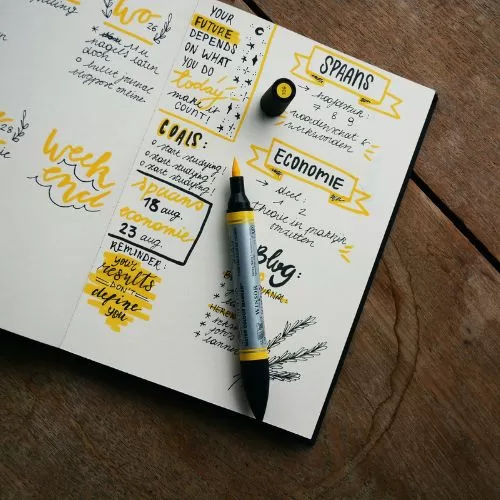 wo
26
nagels laten
doch
bullet journal
support online
28
week
end
YOUR
FUTURE
DEPENDS
ON WHAT
YOU DO
today
make it
COUNT!
GOALS:
start studying!
start studying!
start studying!
spaans
13 aug.
economie
23 aug.
REMINDER:
your
results
DON'T
define
you
SPAANS
→ hoofdstuk:
7 8 9
woordenschat &
werkwoorden
ECONOMIE
→ deel:
1 2
theorie in praktijk
omzetten
Blog:
WINSOR